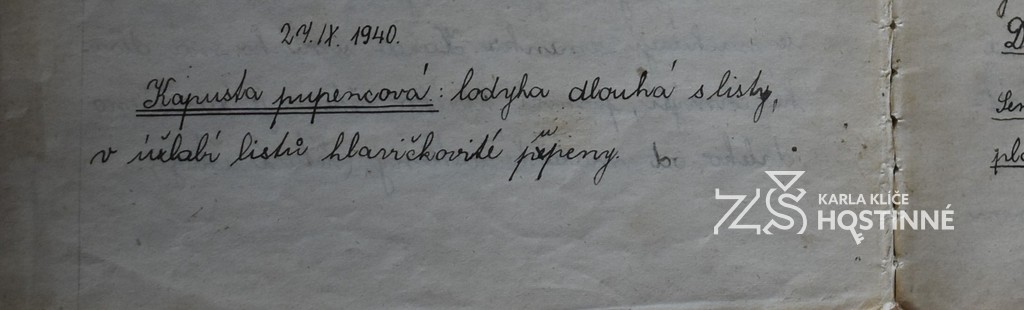 27. IX. 1940.
Kapusta pupencová: lodyha dlouhá s listy,
v úžlabí listů hlavičkovité pupeny.
D
Sem
plo
ZŠ KARLA KLÍČE
HOSTINNÉ